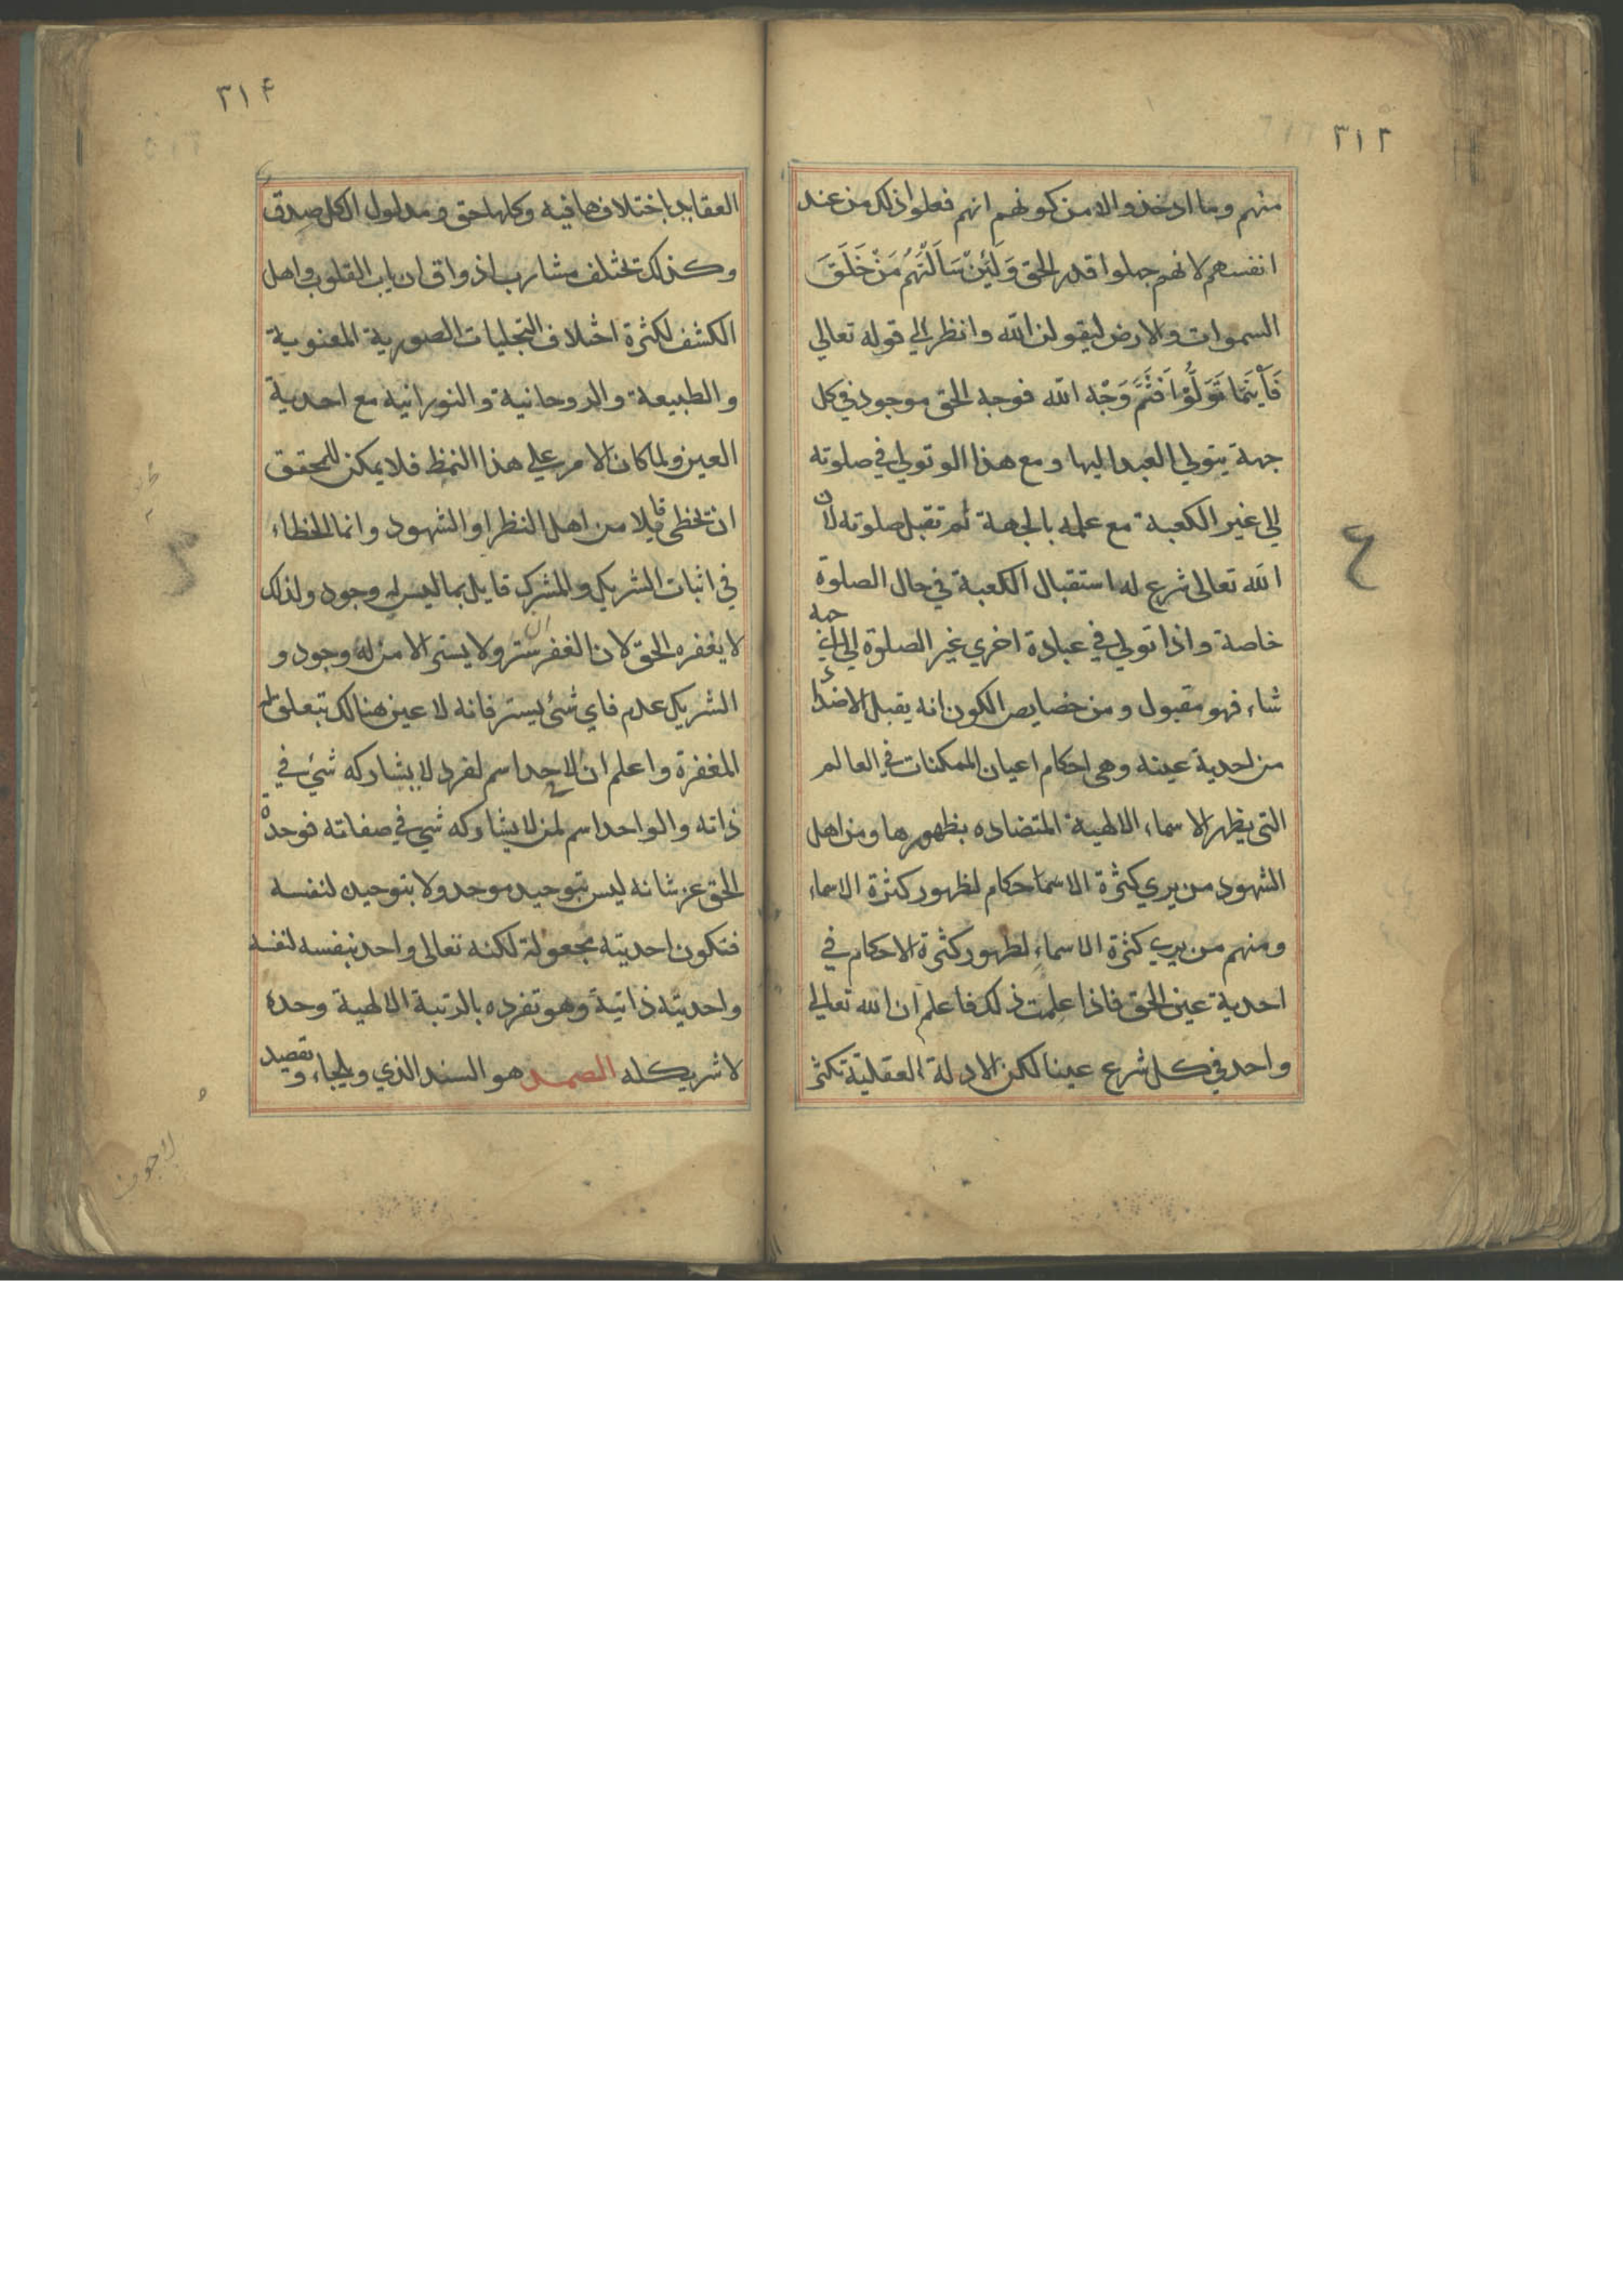 ٣١٢
منهم وما اوخذوا الا من كونهم انهم فعلوا ذلك من عند
انفسهم لانهم جهلوا قدر الحق وَلَئِنْ سَاَلْتَهُمْ مَنْ خَلَقَ
السموات والارض ليقولن الله وانظر الي قوله تعالي
فَاَيْنَمَا تَوَلُّوْا فَثَمَّ وَجْهُ الله فوجه الحق موجود في كل
جهة يتولي العبد اليها ومع هذا لو تولي في صلوته
الي غير الكعبة مع علمه بالجهة لم تقبل صلوته لان
الله تعالى شرع له استقبال الكعبة في حال الصلوة
خاصة واذا تولي في عبادة اخري غير الصلوة الي اي جهة
شاء فهو مقبول ومن خصايص الكون انه يقبل الاضداء
من احدية عينه وهي احكام اعيان الممكنات في العالم
التي يظهر الاسماء الالهية المتضاده بظهورها ومن اهل
الشهود من يري كثرة الاسما احكام لظهور كثرة الاسماء
ومنهم من يري كثرة الاسماءِ لظهور كثرة الاحكام في
احدية عين الحق فاذا علمت ذلك فاعلم ان الله تعالي
واحد في كل شرع عينا لكن الادلة العقلية تكثر
٣١۴
العقايد باختلافها فيه وكلها حق ومدلول الكل صدق
وكذلك تختلف مشارب اذواق ارباب القلوب واهل
الكشف لكثرة اختلاف التجليات الصورية المعنوية
والطبيعة والروحانية والنورانية مع احدية
العين ولما كان الامر علي هذا النمط فلا يمكن للمحقق
ان يخطي قايلا من اهل النظر او الشهود وانما الخطاء
في اثبات الشريك والمشرك قايل بما ليس له وجود ولذلك
لا يغفره الحق لان الغفر ستر ولا يستر الا من له وجود و
الشريك عدم فاي شئ يستر فانه لا عين هنالك تتعلق له
المغفرة واعلم ان الاحد اسم لفرد لا يشاركه شئ في
ذاته والواحد اسم لمن لا يشاركه شي في صفاته فوحده
الحق عز شانه ليس بتوحيد موحد ولا بتوحيد لنفسه
فتكون احديته مجعولة لكنه تعالى واحد بنفسه لنفسه
واحديته ذاتيةً وهو تفرده بالرتبة الالهية وحده
لا شريك له الصمد هو السند الذي ويلجاء و تقصيد